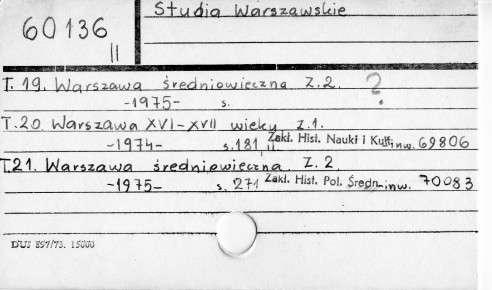 60136
II
Studia Warszawskie
T. 19. Warszawa średniowieczna Z. 2. ?
-1975- s.
T. 20. Warszawa XVI-XVII wieku Z. 1.
-1974- s. 181, II Zakł. Hist. Nauki i Kult. inw. 69806
T. 21. Warszawa średniowieczna Z. 2
-1975- s. 271 Zakł. Hist. Pol. Średn. inw. 70083
DUJ 897/73. 15000